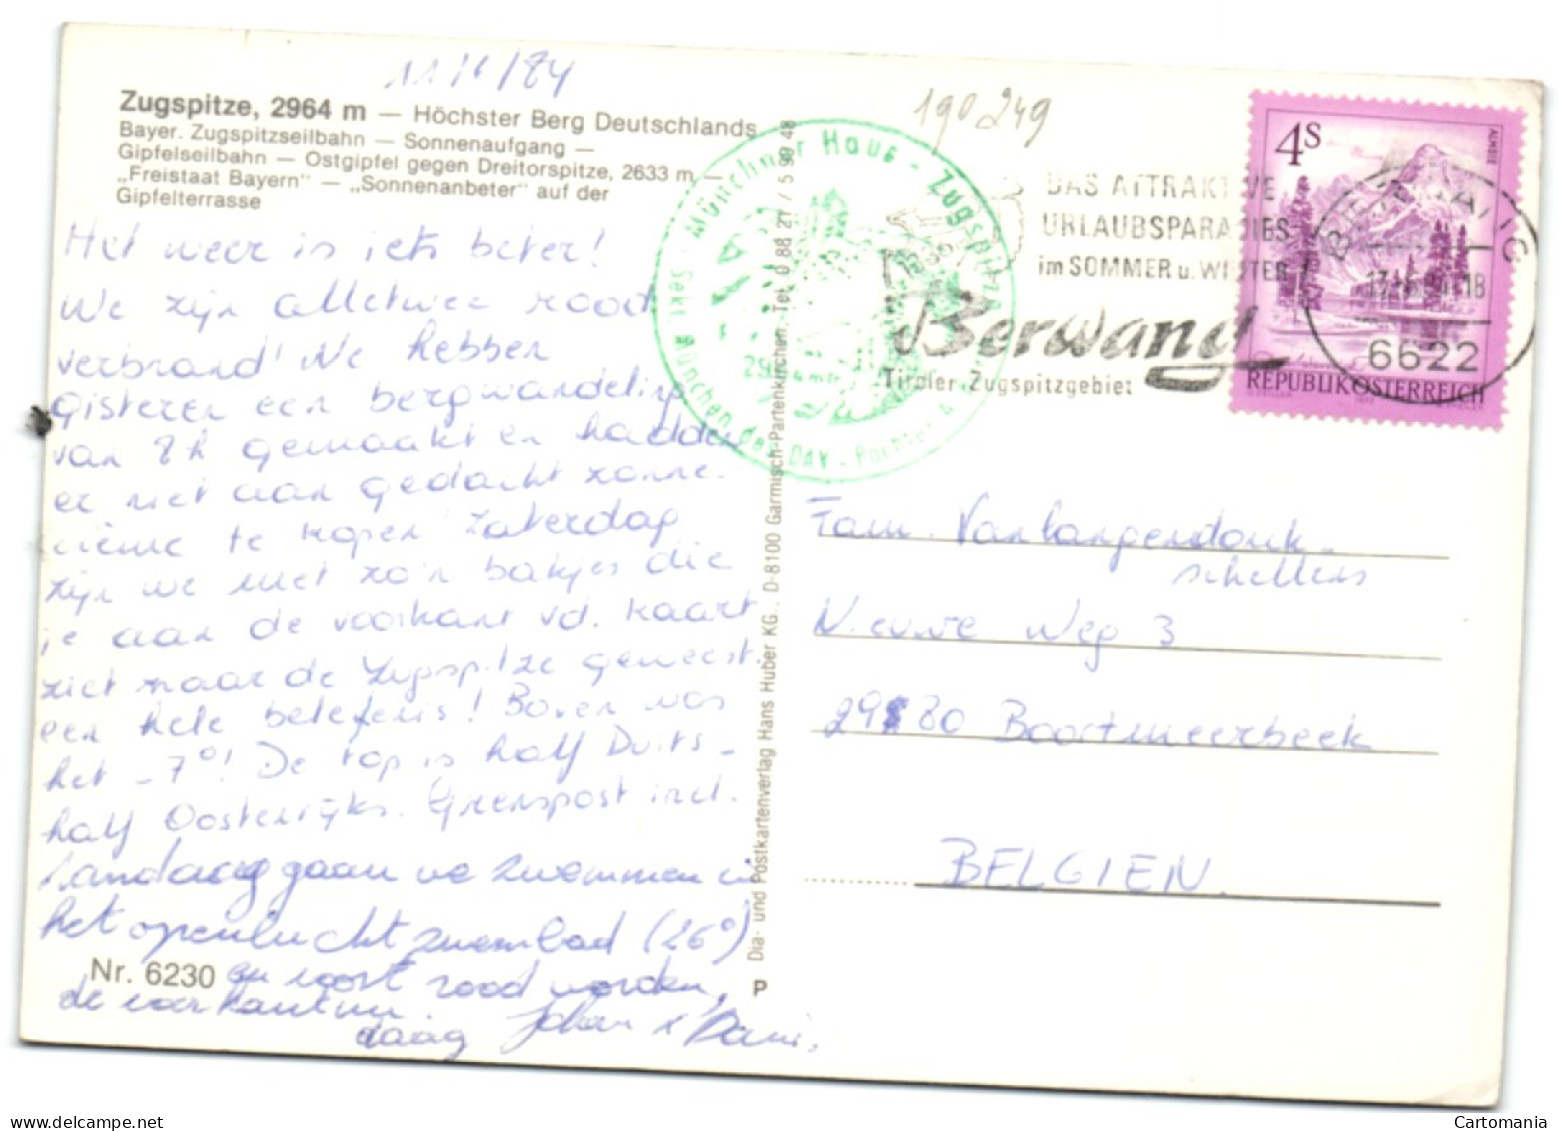 11/6/84
Zugspitze, 2964 m — Höchster Berg Deutschlands
Bayer. Zugspitzseilbahn — Sonnenaufgang —
Gipfelseilbahn — Ostgipfel gegen Dreitorspitze, 2633 m —
„Freistaat Bayern" — „Sonnenanbeter" auf der
Gipfelterrasse
Het weer is iets beter!
We zijn alletwee rood
verbrand! We hebben
gisteren een bergwandeling
van 8h gemaakt en hadden
er niet aan gedacht zonne-
crème te kopen! Zaterdag
zijn we met zo'n bakjes die
je aan de voorkant vd. kaart
ziet naar de Zugspitze geweest.
een hele belefenis! Boven was
het -7°! De top is half Duits-
half Oostenrijks. Grenspost incl.
Vandaag gaan we zwemmen in
het openluchtzwembad (26°)
en voort rood worden,
de voorkant nu.
daag Johan &
Nr. 6230
P
Dia- und Postkartenverlag Hans Huber KG., D-8100 Garmisch-Partenkirchen, Tel. 0 88 21 / 5 99 48
Münchner Haus - Zugspitze
Sekt. München des DAV - Pächter
190249
DAS ATTRAKTIVE
URLAUBSPARADIES
im SOMMER u. WINTER
Berwang
Tiroler Zugspitzgebiet
4S
ALMSEE
REPUBLIK ÖSTERREICH
BERWANG
6622
Fam. Vanlangendonk-
schellens
Nieuwe Weg 3
2980 Boortmeerbeek
BELGIEN.
delcampe.net
Cartomania